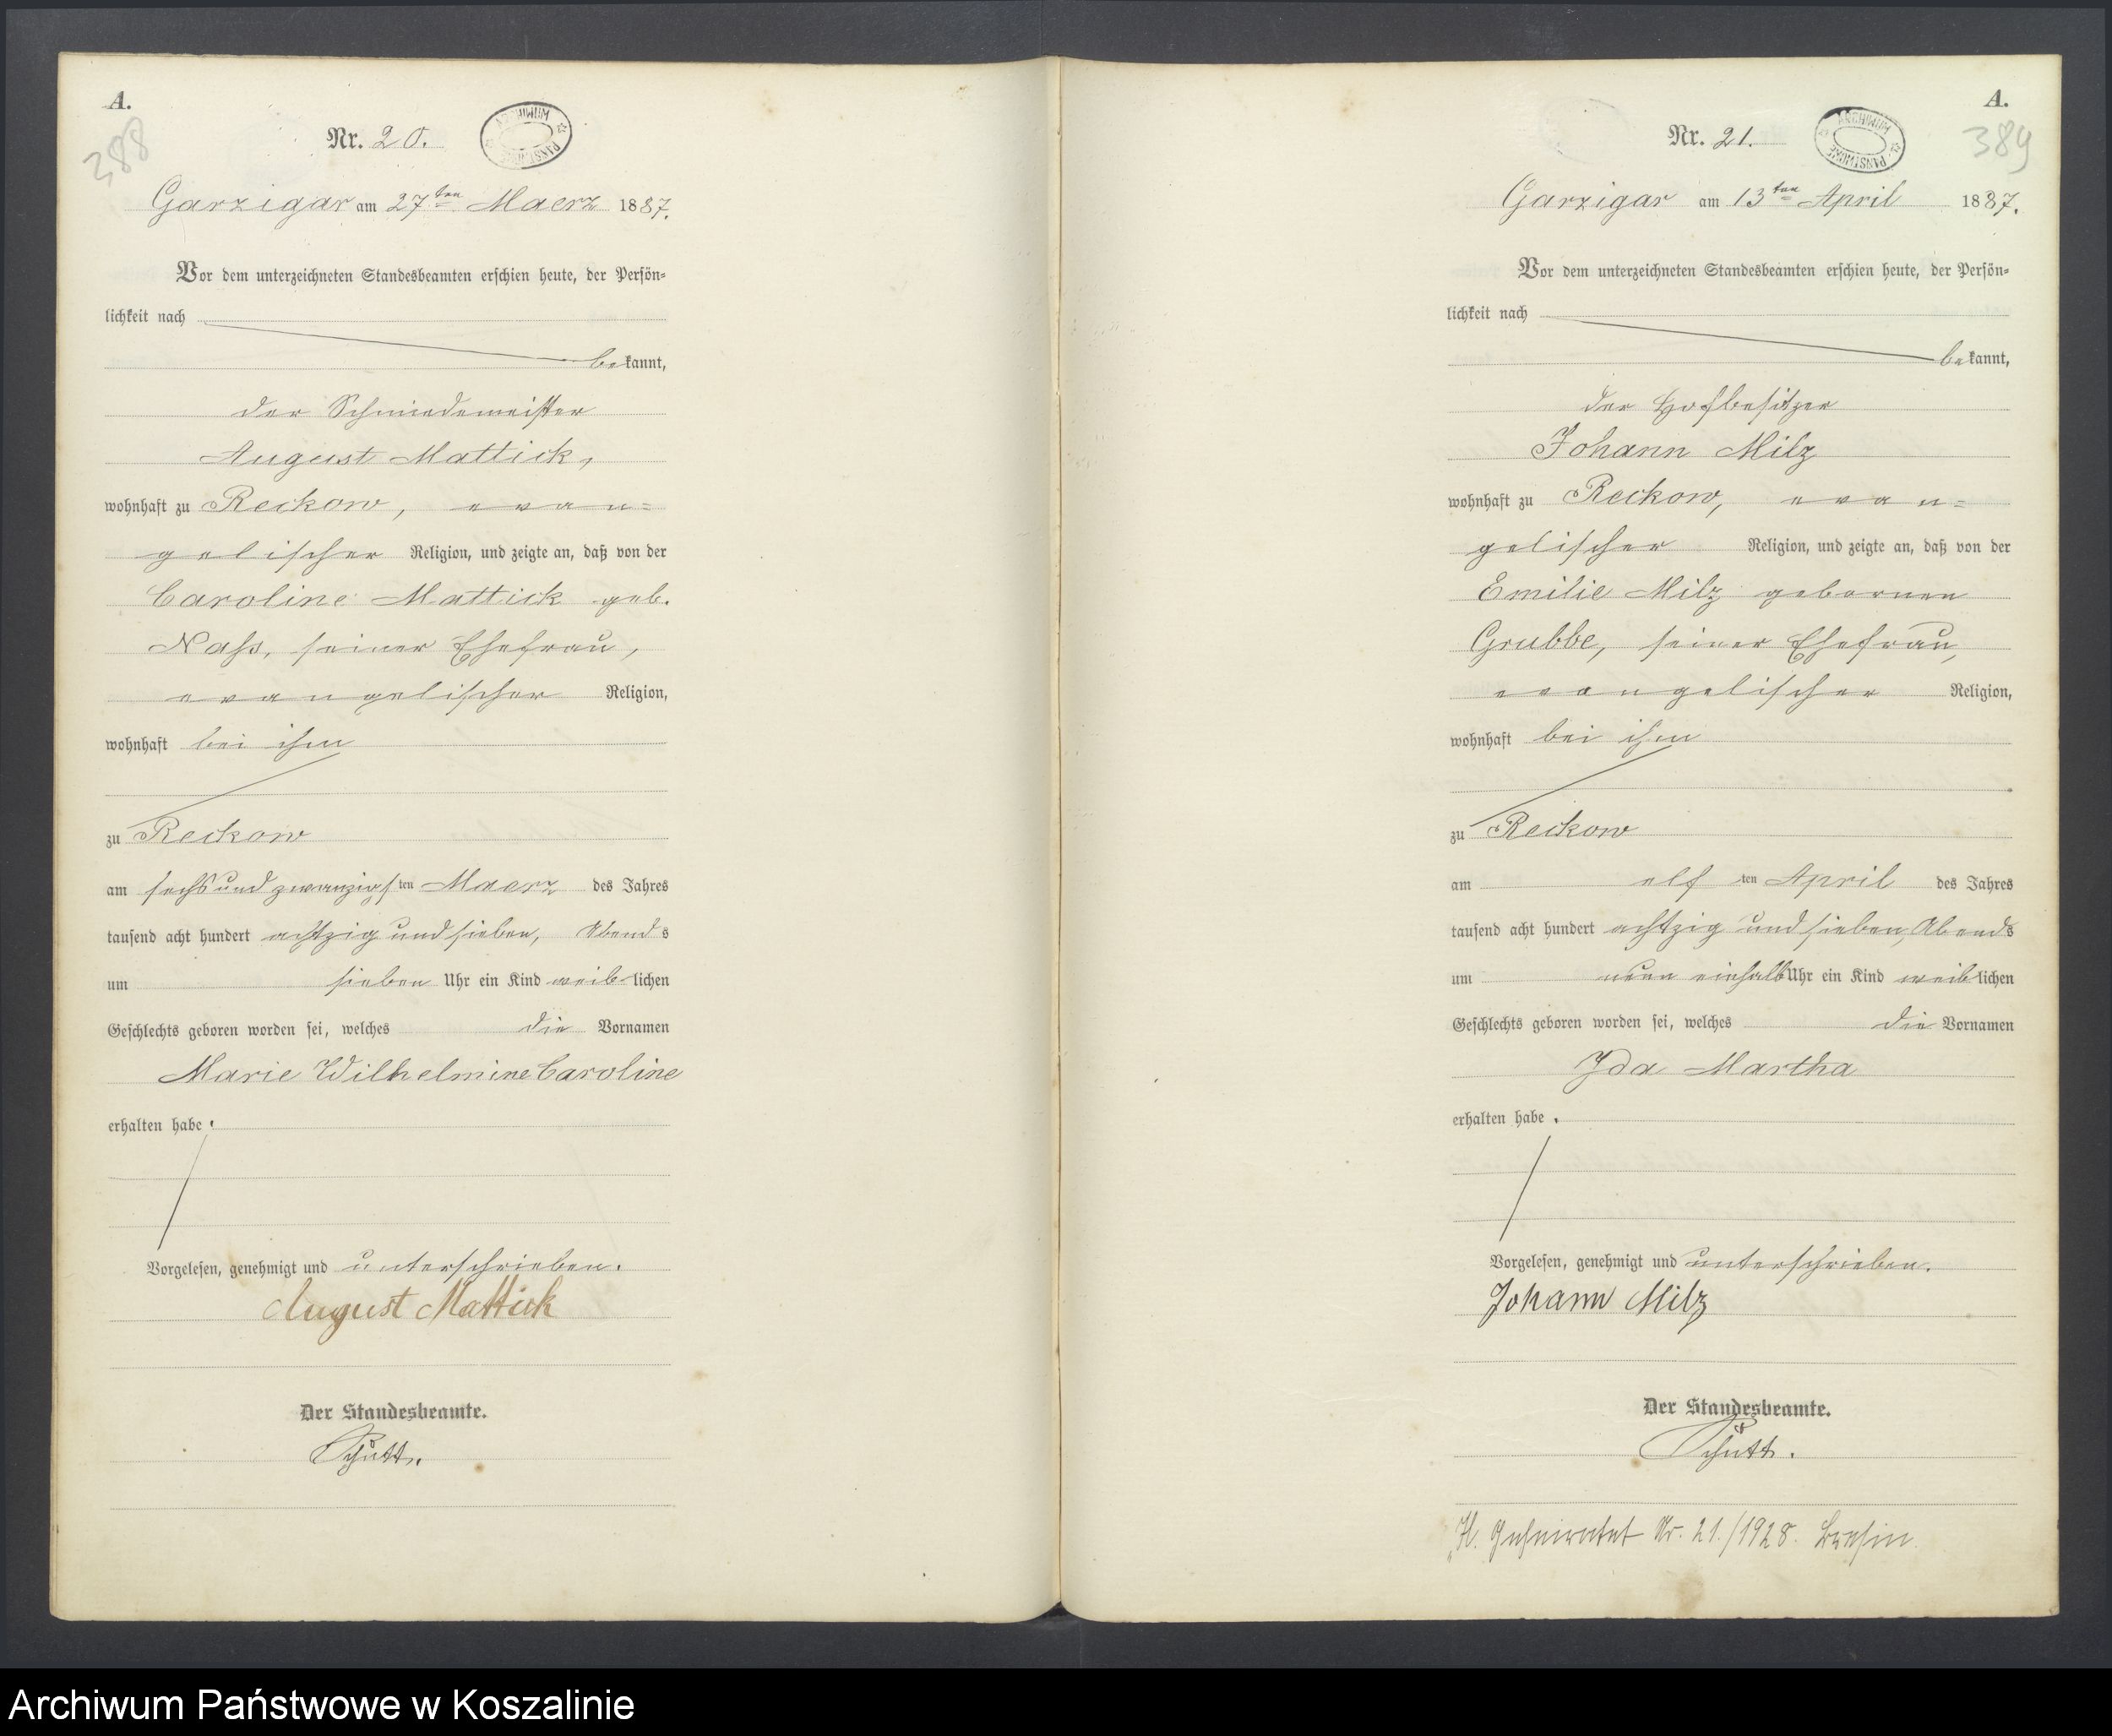 A.
388
Nr. 20.
ARCHIWUM PAŃSTWOWE
Garzigar am 27ten Maerz 1887.
Vor dem unterzeichneten Standesbeamten erschien heute, der Persön=
lichkeit nach
bekannt,
der Schmiedemeister
August Mattick,
wohnhaft zu Reckow, evan=
gelischer Religion, und zeigte an, daß von der
Caroline Mattick geb.
Nass, seiner Ehefrau,
evangelischer Religion,
wohnhaft bei ihm
zu Reckow
am sechsundzwanzigsten Maerz des Jahres
tausend acht hundert achtzig und sieben, Abends
um sieben Uhr ein Kind weiblichen
Geschlechts geboren worden sei, welches die Vornamen
Marie Wilhelmine Caroline
erhalten habe.
Vorgelesen, genehmigt und unterschrieben.
August Mattick
Der Standesbeamte.
Schütt.
A.
389
Nr. 21.
ARCHIWUM PAŃSTWOWE
Garzigar am 13ten April 1887.
Vor dem unterzeichneten Standesbeamten erschien heute, der Persön=
lichkeit nach
bekannt,
der Hofbesitzer
Johann Milz
wohnhaft zu Reckow, evan=
gelischer Religion, und zeigte an, daß von der
Emilie Milz gebornen
Grubbe, seiner Ehefrau,
evangelischer Religion,
wohnhaft bei ihm
zu Reckow
am elften April des Jahres
tausend acht hundert achtzig und sieben, Abends
um neun einhalb Uhr ein Kind weiblichen
Geschlechts geboren worden sei, welches die Vornamen
Ida Martha
erhalten habe.
Vorgelesen, genehmigt und unterschrieben.
Johann Milz
Der Standesbeamte.
Schütt.
Geheiratet Nr. 21./1928.
Archiwum Państwowe w Koszalinie